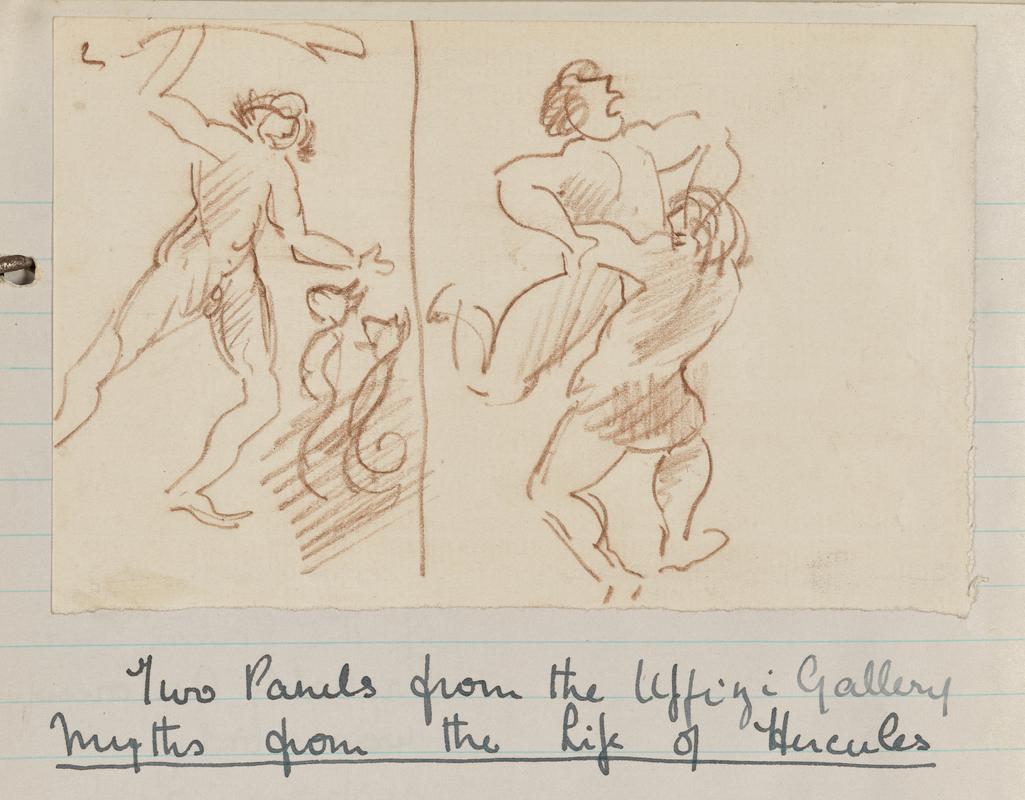 Two Panels from the Uffizi Gallery
Myths from the Life of Hercules